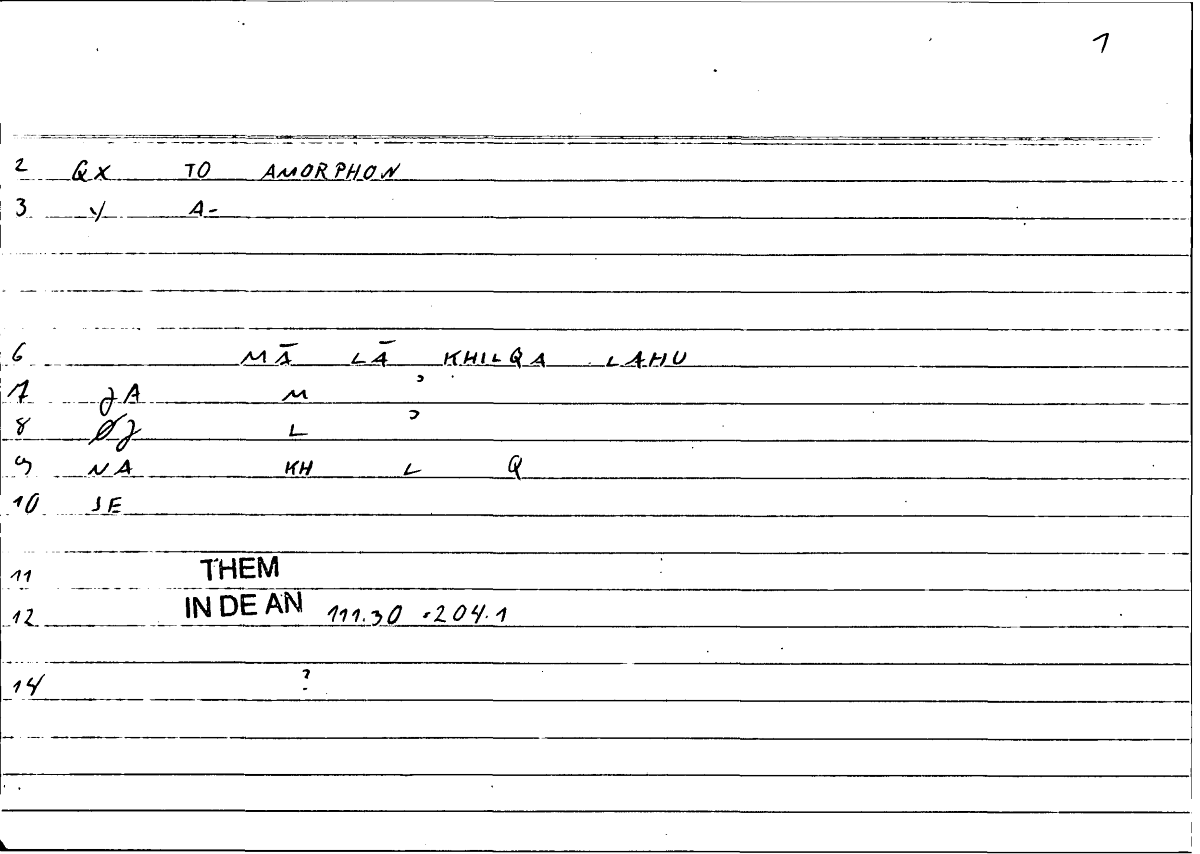 1
2 QX TO AMORPHON
3 Y A-
6 MĀ LĀ KHILQA LAHU
7 JA M ʾ
8 ØJ L ʾ
9 NA KH L Q
10 SE
11 THEM
12 IN DE AN 111.30 -204.1
14 ?